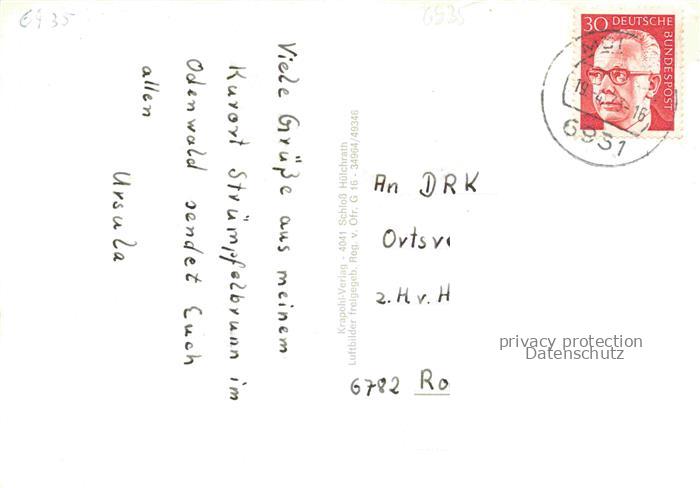 6935
6935
Viele Grüße aus meinem
Kurort Strümpfelbrunn im
Odenwald sendet Euch
allen
Ursula
Krapohl-Verlag - 4041 Schloß Hülchrath
Luftbilder freigegeb. Reg. v. Ofr. G 16 - 34964/49346
30 DEUTSCHE
BUNDESPOST
6931
An DRK
Ortsv
z. H v. H
6782 Ro
privacy protection
Datenschutz